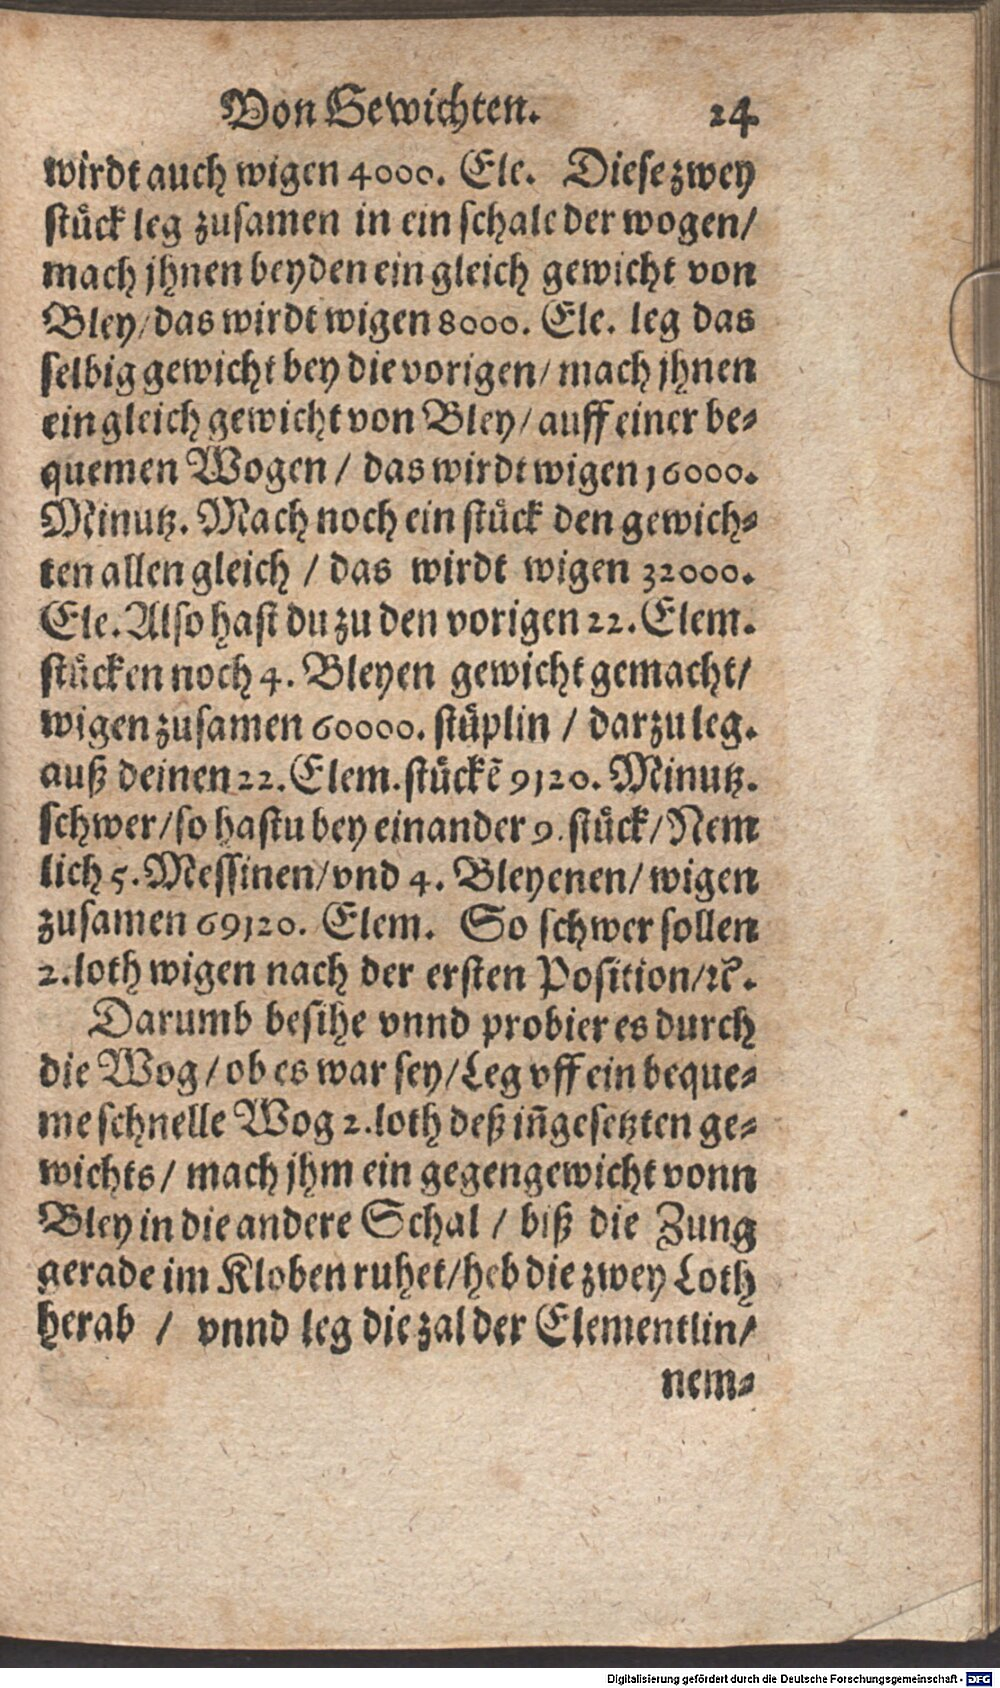 Von Gewichten. 24
wirdt auch wigen 4000. Ele. Diese zwey
stuͤck leg zusamen in ein schale der wogen/
mach jhnen beyden ein gleich gewicht von
Bley/das wirdt wigen 8000. Ele. leg das
selbig gewicht bey die vorigen/ mach jhnen
ein gleich gewicht von Bley/ auff einer be⸗
quemen Wogen / das wirdt wigen 16000.
Minutz. Mach noch ein stuͤck den gewich⸗
ten allen gleich / das wirdt wigen 32000.
Ele. Also hast du zu den vorigen 22. Elem.
stuͤcken noch 4. Bleyen gewicht gemacht/
wigen zusamen 60000. stuͤplin / darzu leg.
auß deinen 22. Elem. stuͤckẽ 9120. Minutz.
schwer/so hastu bey einander 9. stuͤck/Nem
lich 5. Messinen/vnd 4. Bleyenen/ wigen
zusamen 69120. Elem. So schwer sollen
2. loth wigen nach der ersten Position/ꝛc.
Darumb besihe vnnd probier es durch
die Wog/ ob es war sey/Leg vff ein beque⸗
me schnelle Wog 2. loth deß iñgesetzten ge⸗
wichts/ mach jhm ein gegengewicht vonn
Bley in die andere Schal / biß die Zung
gerade im Kloben ruhet/heb die zwey Loth
herab / vnnd leg die zal der Elementlin/
nem⸗
Digitalisierung gefördert durch die Deutsche Forschungsgemeinschaft - DFG